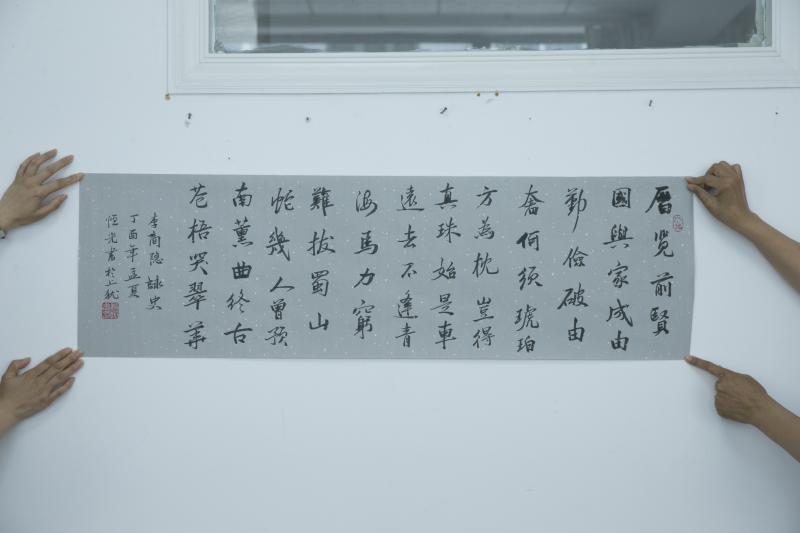 曆览前賢
國與家成由
勤儉破由
奢何须琥珀
方為枕豈得
真珠始是車
遠去不逢青
海馬力窮
難拔蜀山
蛇幾人曾預
南薰曲終古
苍梧哭翠華
李商隐詠史
丁酉年孟夏
恒光書於上